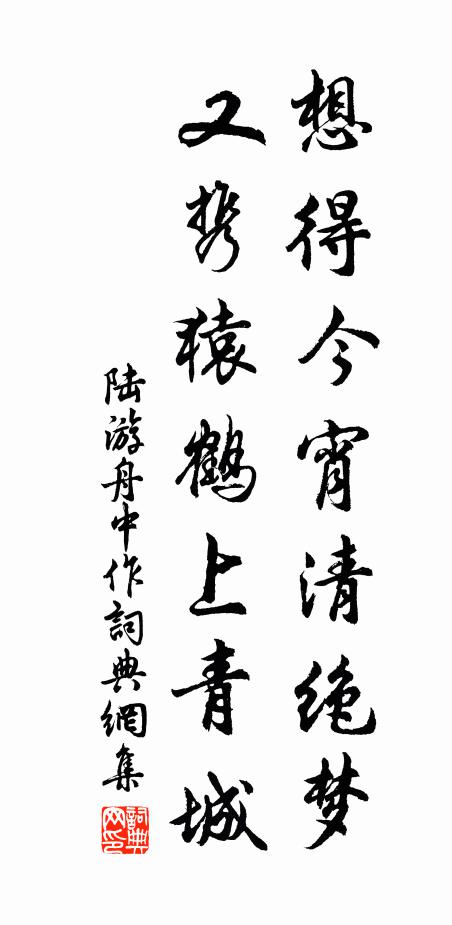 想得今宵清绝梦
又携猿鹤上青城
陆游舟中作詞典網集
詞典网印